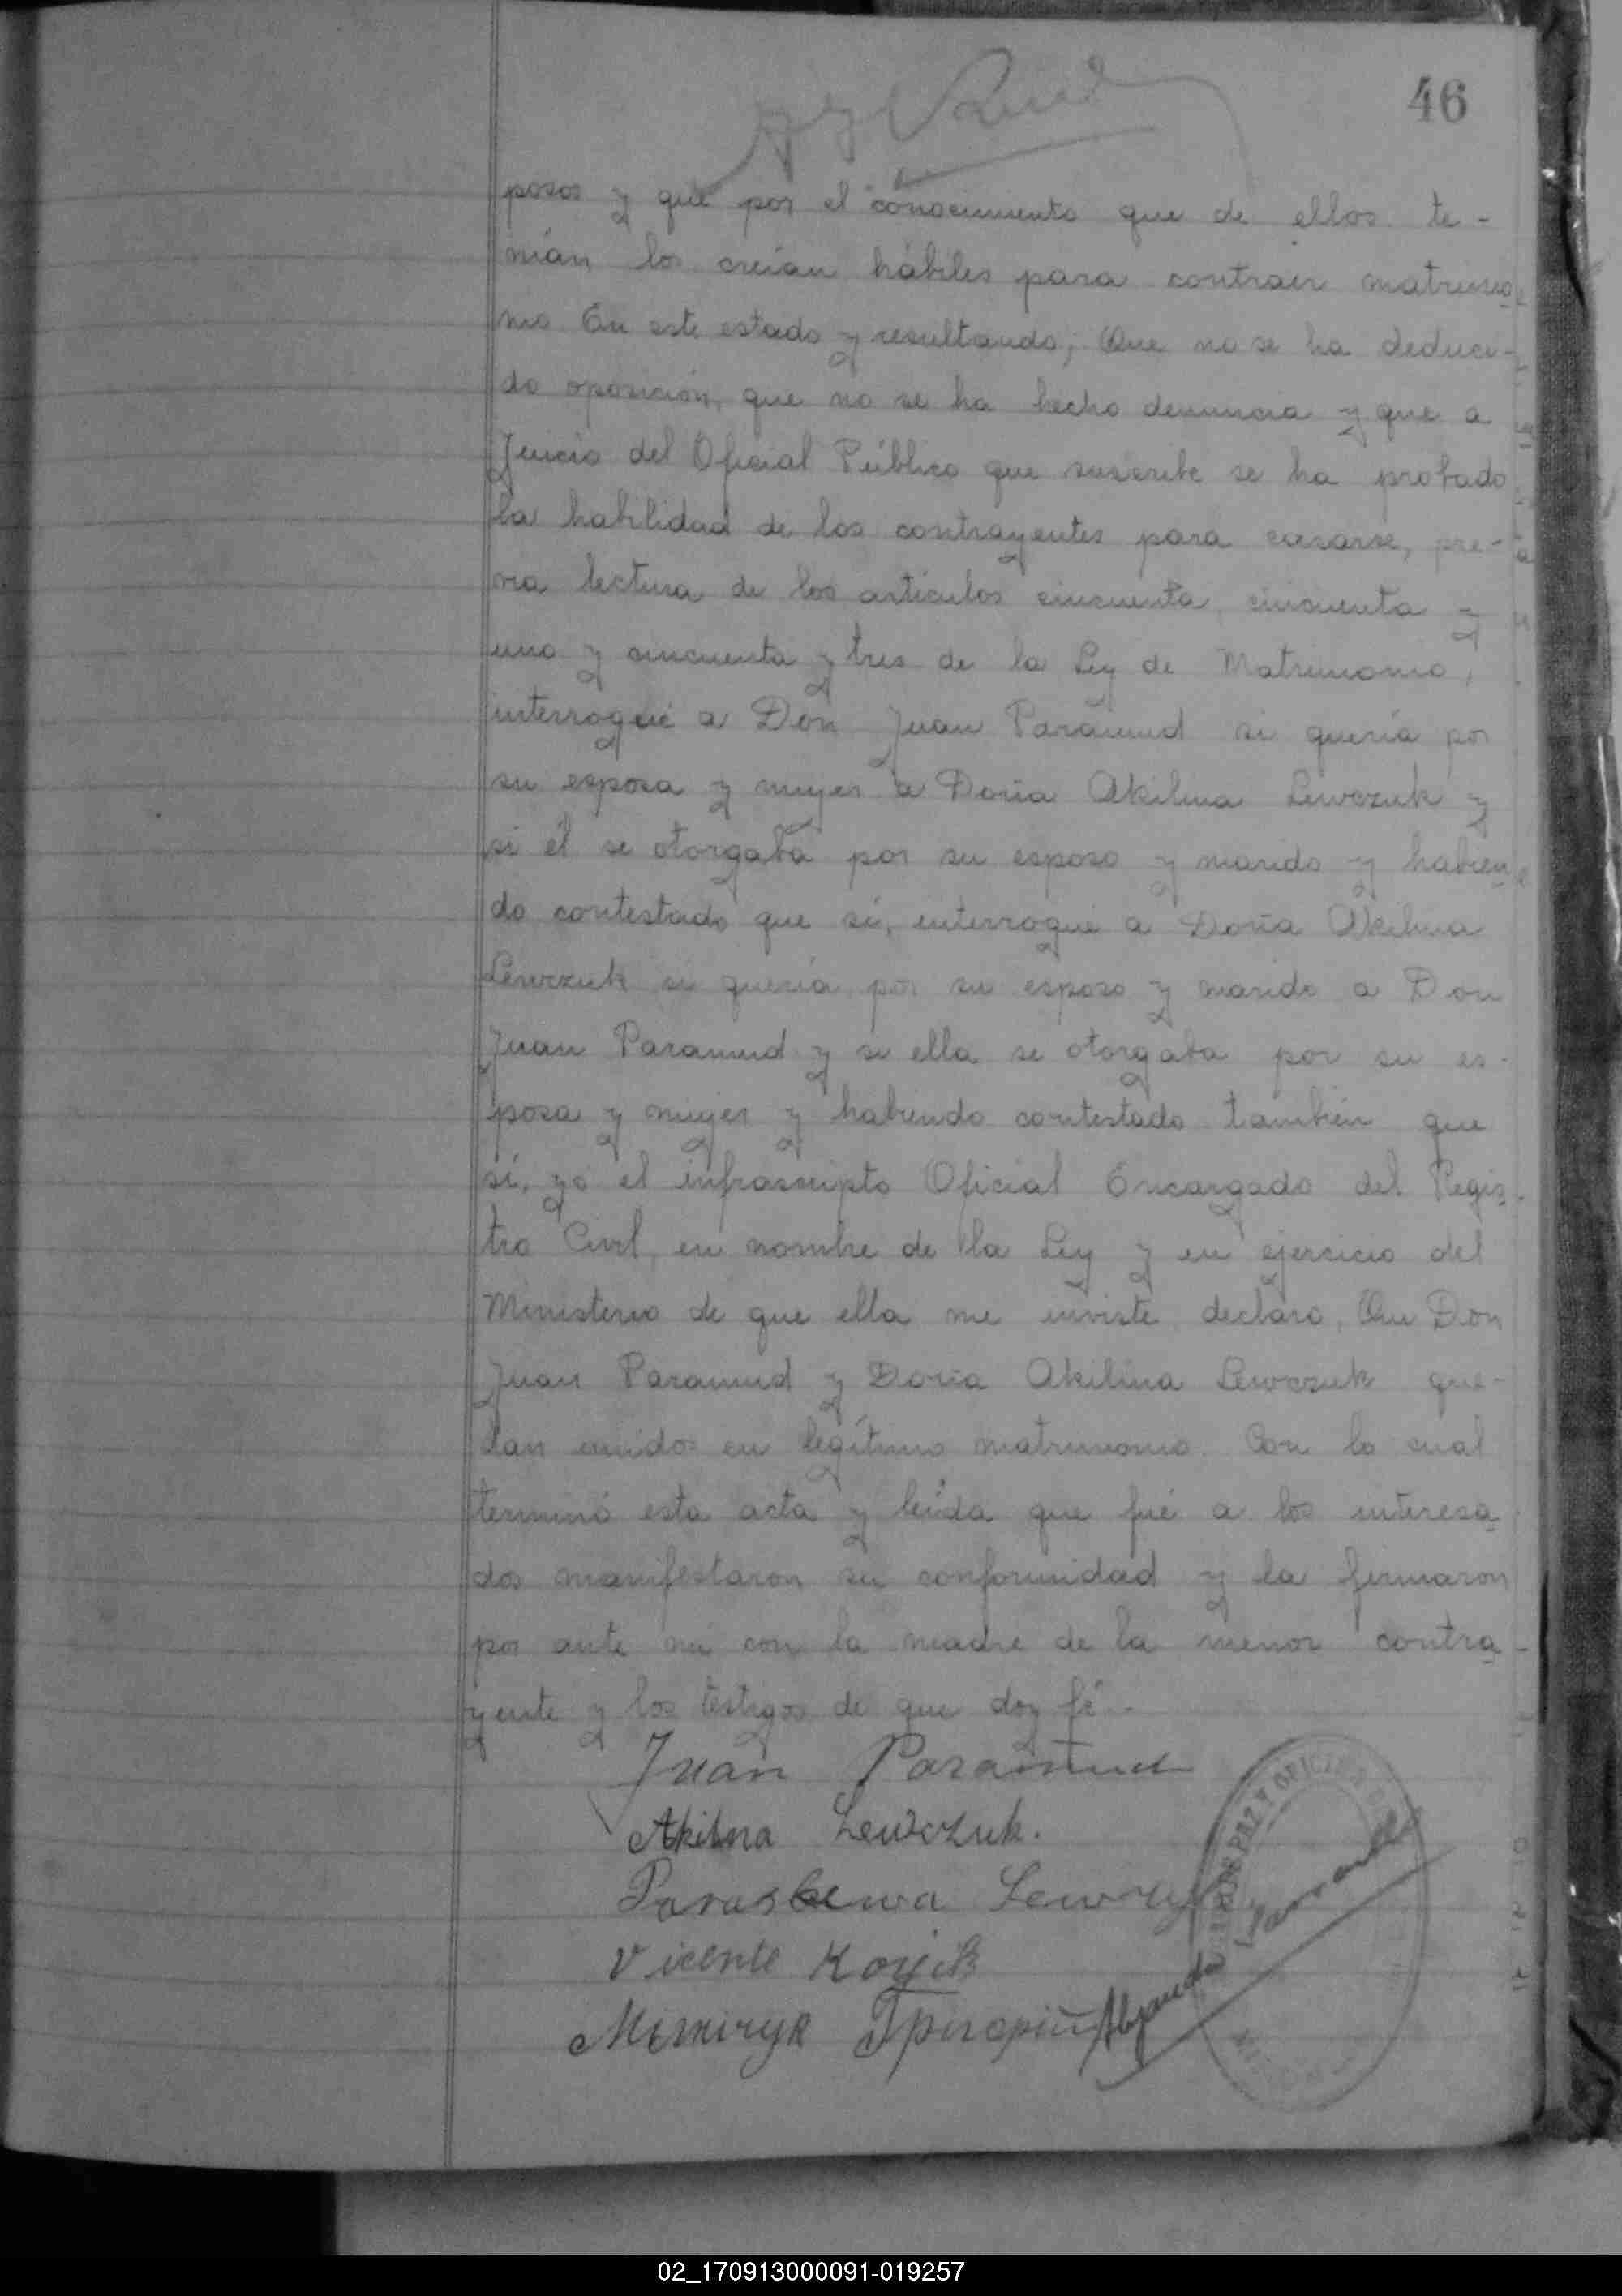 46
posos y que por el conocimiento que de ellos te-
nían los creían hábiles para contraer matrimo
nio En este estado y resultando; Que no se ha deduci-
do oposición, que no se ha hecho denuncia y que a
Juicio del Oficial Público que suscribe se ha probado
la habilidad de los contrayentes para casarse, pre-
via lectura de los artículos cincuenta, cincuenta y
uno y cincuenta y tres de la Ley de Matrimonio,
interrogué a Don Juan Paramud si quería por
su esposa y mujer a Doña Akilina Lewczuk y
si él se otorgaba por su esposo y marido y habien
do contestado que sí, interrogué a Doña Akilina
Lewczuk si quería por su esposo y marido a Don
Juan Paramud y si ella se otorgaba por su es-
posa y mujer y habiendo contestado también que
sí, yo el infrascripto Oficial Encargado del Regis-
tro Civil, en nombre de la Ley y en ejercicio del
Ministerio de que ella me inviste declaro, Que Don
Juan Paramud y Doña Akilina Lewczuk que-
dan unidos en legítimo matrimonio. Con lo cual
terminó esta acta y leída que fué a los interesa
dos manifestaron su conformidad y la firmaron
por ante mi con la madre de la menor contra-
yente y los testigos de que doy fé..
Juan Paramud
Akilna Lewczuk.
Paraskewa
Vicente
DE PAZ Y OFICINA
02_170913000091-019257